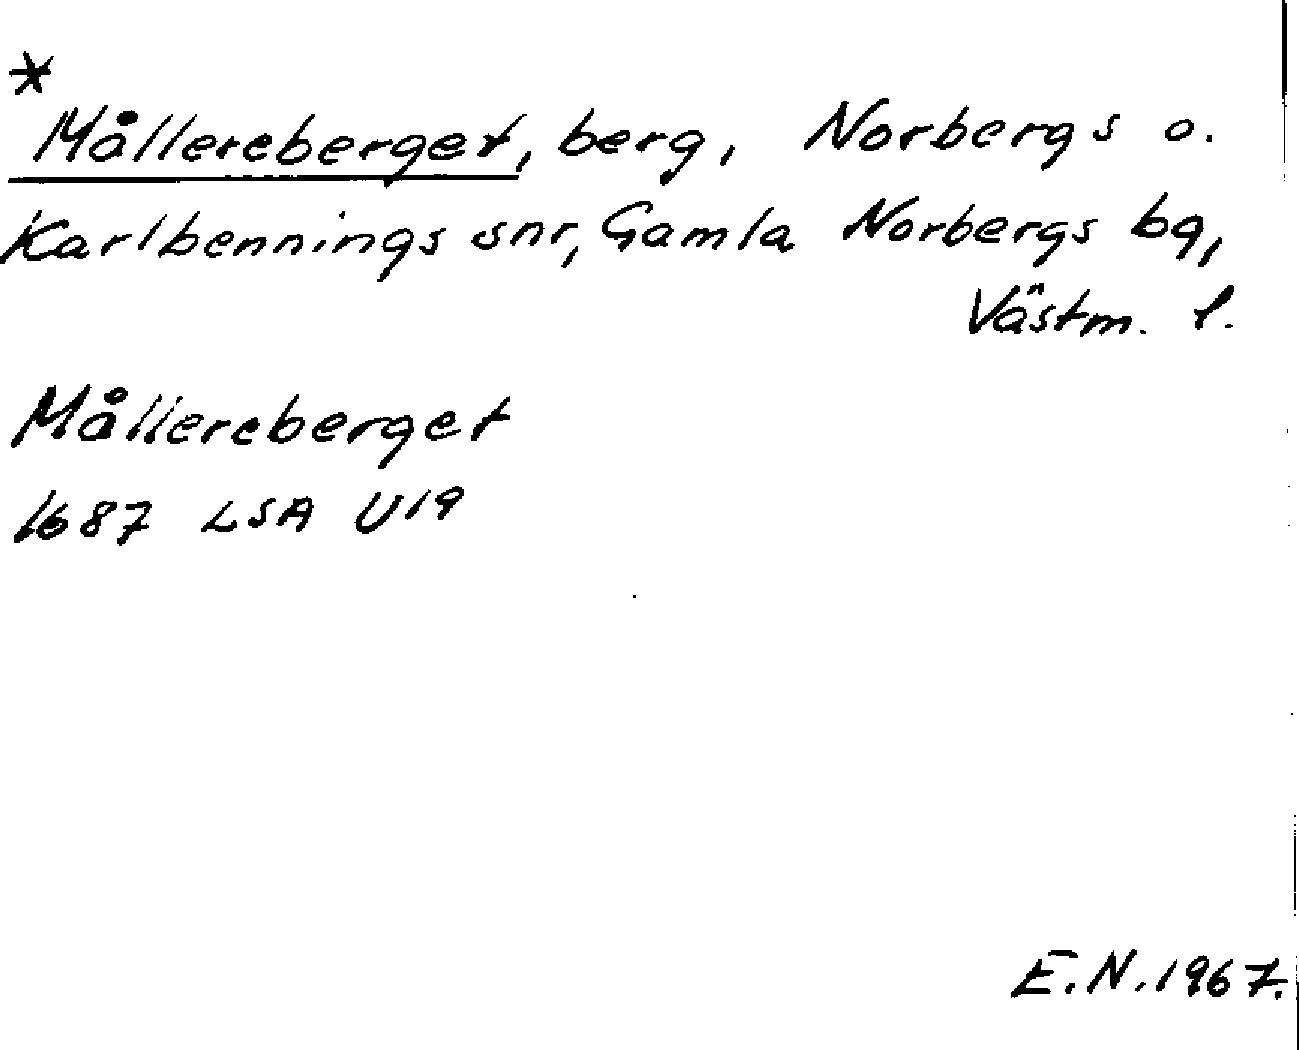 *
Mållereberget, berg, Norbergs o.
Karlbennings snr, Gamla Norbergs bg,
Västm. l.
Mållereberget
1687 LSA U19
E.N. 1967.